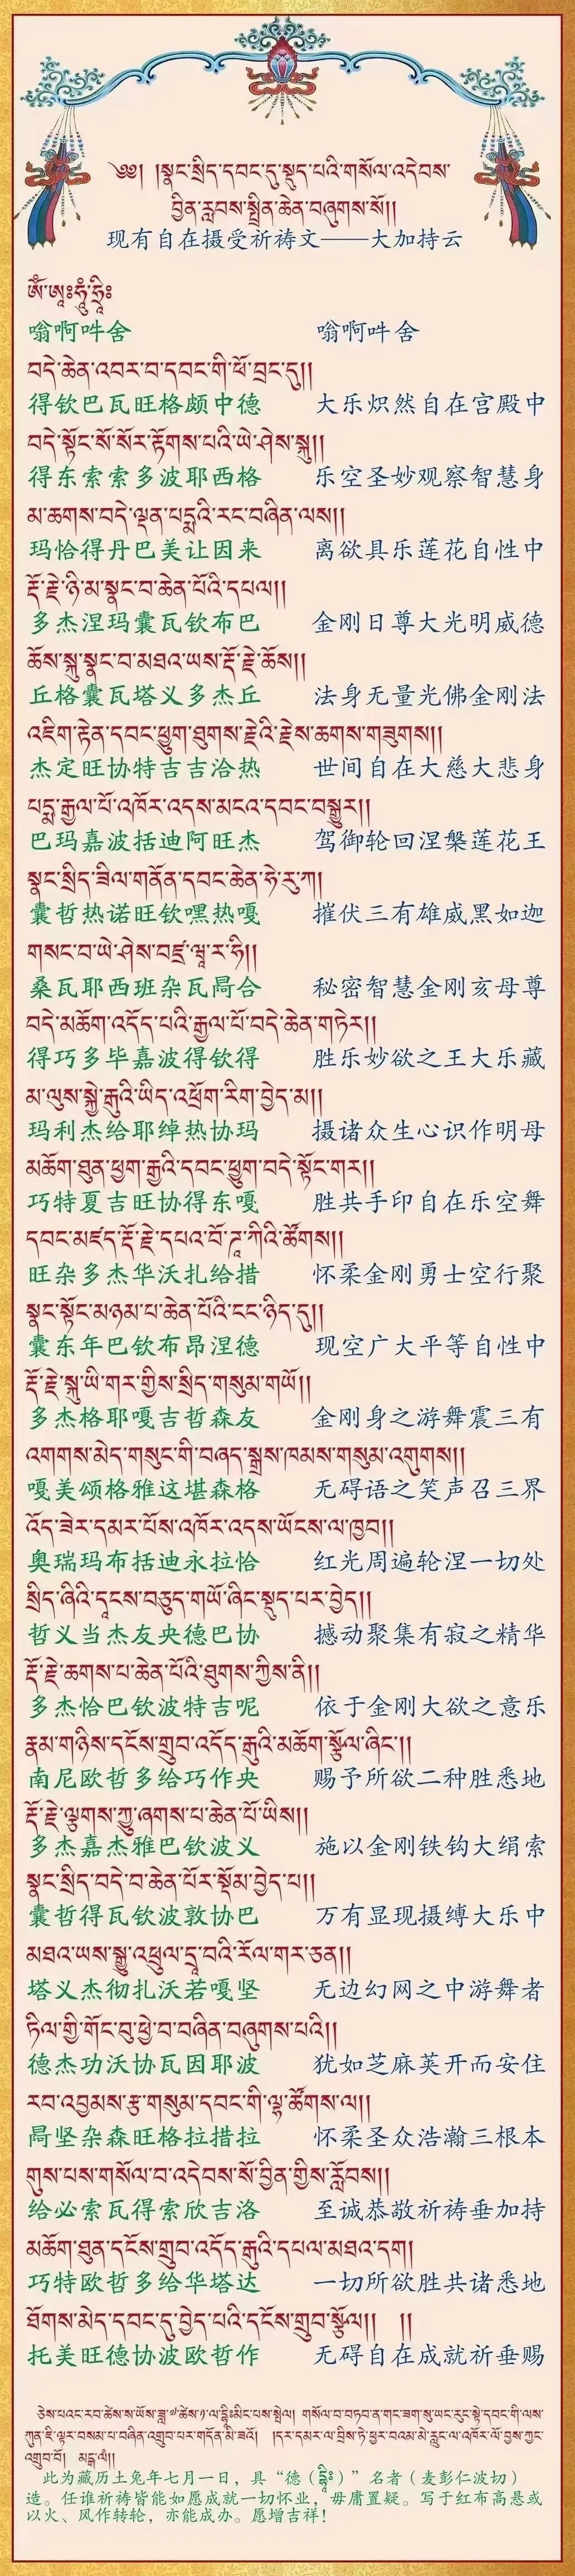 ༄༅། །སྣང་སྲིད་དབང་དུ་སྡུད་པའི་གསོལ་འདེབས་
བྱིན་རླབས་སྤྲིན་ཆེན་བཞུགས་སོ།།
现有自在摄受祈祷文——大加持云
ཨོཾ་ཨཱཿཧཱུྃ་ཧྲཱིཿ
嗡啊吽舍 嗡啊吽舍
བདེ་ཆེན་འབར་བ་དབང་གི་ཕོ་བྲང་དུ།།
得钦巴瓦旺格颇中德 大乐炽然自在宫殿中
བདེ་སྟོང་སོ་སོར་རྟོགས་པའི་ཡེ་ཤེས་སྐུ།།
得东索索多波耶西格 乐空圣妙观察智慧身
མ་ཆགས་བདེ་ལྡན་པདྨའི་རང་བཞིན་ལས།།
玛恰得丹巴美让因来 离欲具乐莲花自性中
རྡོ་རྗེ་ཉི་མ་སྣང་བ་ཆེན་པོའི་དཔལ།།
多杰涅玛囊瓦钦布巴 金刚日尊大光明威德
ཆོས་སྐུ་སྣང་བ་མཐའ་ཡས་རྡོ་རྗེ་ཆོས།།
丘格囊瓦塔义多杰丘 法身无量光佛金刚法
འཇིག་རྟེན་དབང་ཕྱུག་ཐུགས་རྗེའི་རྗེས་ཆགས་གཟུགས།།
杰定旺协特吉吉洽热 世间自在大慈大悲身
པདྨ་རྒྱལ་པོ་འཁོར་འདས་མངའ་དབང་བསྒྱུར།།
巴玛嘉波括迪阿旺杰 驾御轮回涅槃莲花王
སྣང་སྲིད་ཟིལ་གནོན་དབང་ཆེན་ཧེ་རུ་ཀ།
囊哲热诺旺钦嘿热嘎 摧伏三有雄威黑如迦
གསང་བ་ཡེ་ཤེས་བཛྲ་ཝཱ་ར་ཧི།།
桑瓦耶西班杂瓦局合 秘密智慧金刚亥母尊
བདེ་མཆོག་འདོད་པའི་རྒྱལ་པོ་བདེ་ཆེན་གཏེར།།
得巧多毕嘉波得钦得 胜乐妙欲之王大乐藏
མ་ལུས་སྐྱེ་རྒུའི་ཡིད་འཕྲོག་རིག་བྱེད་མ།།
玛利杰给耶绰热协玛 摄诸众生心识作明母
མཆོག་ཐུན་ཕྱག་རྒྱའི་དབང་ཕྱུག་བདེ་སྟོང་གར།།
巧特夏吉旺协得东嘎 胜共手印自在乐空舞
དབང་མཛད་རྡོ་རྗེ་དཔའ་བོ་ཌཱ་ཀིའི་ཚོགས།།
旺杂多杰华沃扎给措 怀柔金刚勇士空行聚
སྣང་སྟོང་མཉམ་པ་ཆེན་པོའི་ངང་ཉིད་དུ།།
囊东年巴钦布昂涅德 现空广大平等自性中
རྡོ་རྗེ་སྐུ་ཡི་གར་གྱིས་སྲིད་གསུམ་གཡོ།།
多杰格耶嘎吉哲森友 金刚身之游舞震三有
འགགས་མེད་གསུང་གི་བཞད་སྒྲས་ཁམས་གསུམ་འགུགས།།
嘎美颂格雅这堪森格 无碍语之笑声召三界
འོད་ཟེར་དམར་པོས་འཁོར་འདས་ཡོངས་ལ་ཁྱབ།།
奥瑞玛布括迪永拉恰 红光周遍轮涅一切处
སྲིད་ཞིའི་དྭངས་བཅུད་གཡོ་ཞིང་སྡུད་པར་བྱེད།།
哲义当杰友央德巴协 撼动聚集有寂之精华
རྡོ་རྗེ་ཆགས་པ་ཆེན་པོའི་ཐུགས་ཀྱིས་ནི།།
多杰恰巴钦波特吉呢 依于金刚大欲之意乐
རྣམ་གཉིས་དངོས་གྲུབ་འདོད་རྒུའི་མཆོག་སྩོལ་ཞིང་།།
南尼欧哲多给巧作央 赐予所欲二种胜悉地
རྡོ་རྗེ་ལྕགས་ཀྱུ་ཞགས་པ་ཆེན་པོ་ཡིས།།
多杰嘉杰雅巴钦波义 施以金刚铁钩大绢索
སྣང་སྲིད་བདེ་བ་ཆེན་པོར་སྡོམ་བྱེད་པ།།
囊哲得瓦钦波敦协巴 万有显现摄缚大乐中
མཐའ་ཡས་སྒྱུ་འཕྲུལ་དྲྭ་བའི་རོལ་གར་ཅན།།
塔义杰彻扎沃若嘎坚 无边幻网之中游舞者
ཏིལ་གྱི་གོང་བུ་ཕྱེ་བ་བཞིན་བཞུགས་པའི།།
德杰功沃协瓦因耶波 犹如芝麻荚开而安住
རབ་འབྱམས་རྩ་གསུམ་དབང་གི་ལྷ་ཚོགས་ལ།།
坚杂森旺格拉措拉 怀柔圣众浩瀚三根本
གུས་པས་གསོལ་བ་འདེབས་སོ་བྱིན་གྱིས་རློབས།།
给必索瓦得索欣吉洛 至诚恭敬祈祷垂加持
མཆོག་ཐུན་དངོས་གྲུབ་འདོད་རྒུའི་དཔལ་མཐའ་དག།
巧特欧哲多给华塔达 一切所欲胜共诸悉地
ཐོགས་མེད་དབང་དུ་བྱེད་པའི་དངོས་གྲུབ་སྩོལ།། །།
托美旺德协波欧哲作 无碍自在成就祈垂赐
ཅེས་པའང་རབ་ཚེས་ས་ཡོས་ཟླ་༧་ཚེས་༡་ལ་དྷཱིཿམིང་པས་སྤེལ། གསོལ་བ་བཏབ་ན་གང་ཟག་སུ་ཡང་རུང་སྟེ་དབང་གི་ལས་
ཀུན་ཇི་ལྟར་བསམ་པ་བཞིན་འགྲུབ་པར་གདོན་མི་ཟའོ། །དར་དམར་ལ་བྲིས་ཏེ་ཕྱར་བའམ་མེ་རླུང་ལ་འཁོར་ལོ་བྱས་ཀྱང་
འགྲུབ་བོ། མངྒ་ལཾ།།
此为藏历土兔年七月一日，具“德（དྷཱིཿ）”名者（麦彭仁波切）
造。任谁祈祷皆能如愿成就一切怀业，毋庸置疑。写于红布高悬或
以火、风作转轮，亦能成办。愿增吉祥！